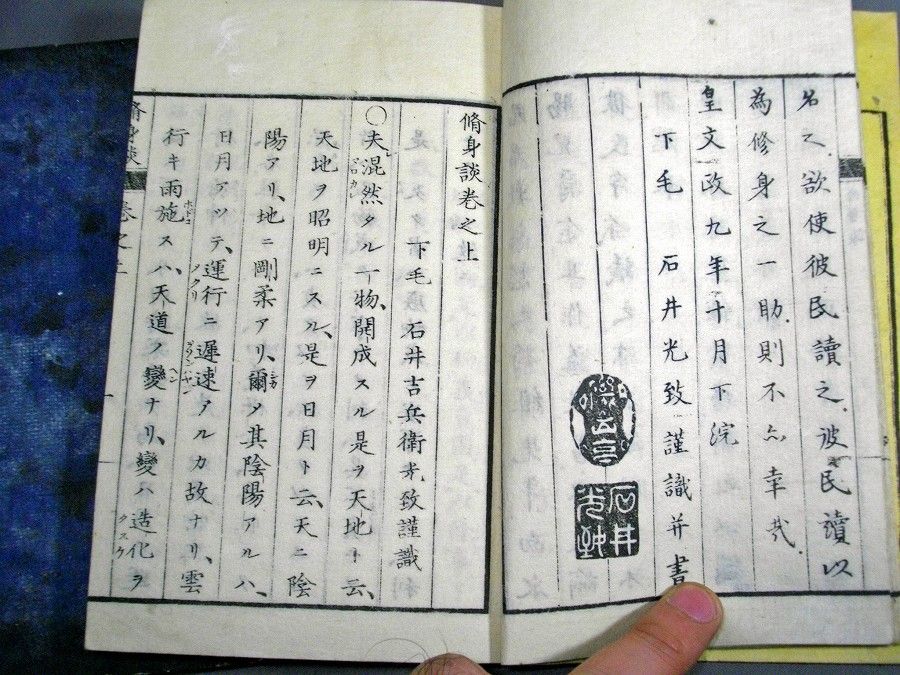 名之欲使彼民讀之彼民讀以
為修身之一助則不亦幸哉
皇文政九年十月下浣
下毛 石井光致謹識并書
石井
光致
脩身談卷之上
下毛 石井吉兵衛光致謹識
○夫混然タル一物開成スル是ヲ天地ト云
天地ヲ昭明ニスル是ヲ日月ト云天ニ陰
陽アリ地ニ剛柔アリ爾ノ其陰陽アルハ
日月アツテ運行ニ遲速アルカ故ナリ雲
行キ雨施スハ天道ノ變ナリ變ハ造化ヲ
脩身談 卷之上